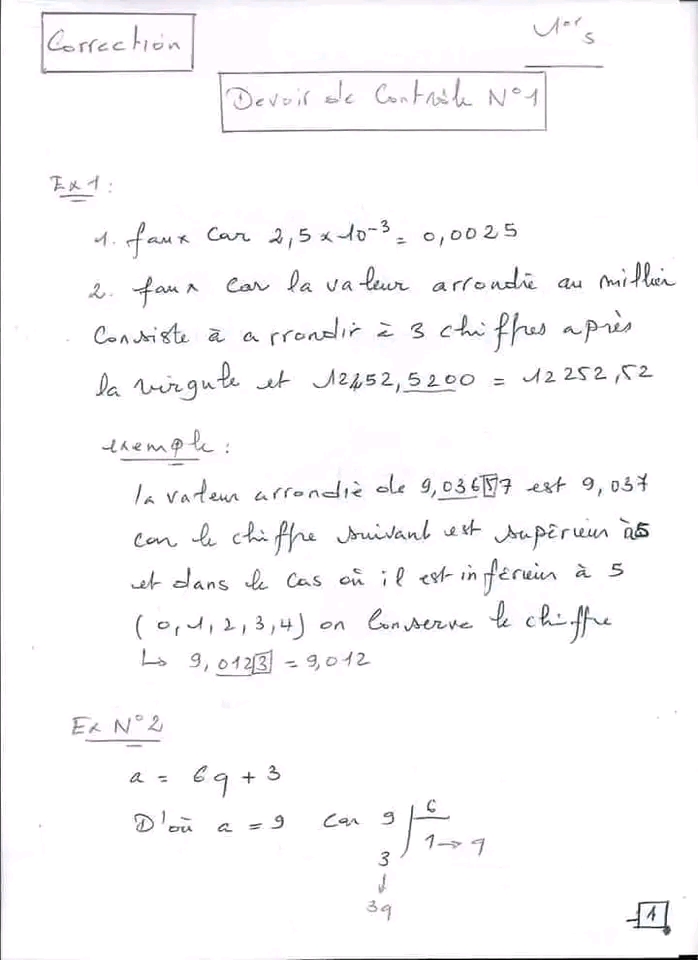 Correction
1ers
Devoir de Contrôle N°1
Ex 1 :
1. faux car 2,5 x 10⁻³ = 0,0025
2. faux car la valeur arrondie au millier
Consiste à arrondir à 3 chiffres après
la virgule et 12452,5200 = 12252,52
exemple :
la valeur arrondiè de 9,03657 est 9,037
car le chiffre suivant est supérieur à 5
et dans le cas où il est inférieur à 5
(0,1,2,3,4) on Conserve le chiffre
↳ 9,0123 = 9,012
Ex N°2
a = 6q + 3
D'où a = 9 car 9 | 6
3 1 → q
↓
39
1